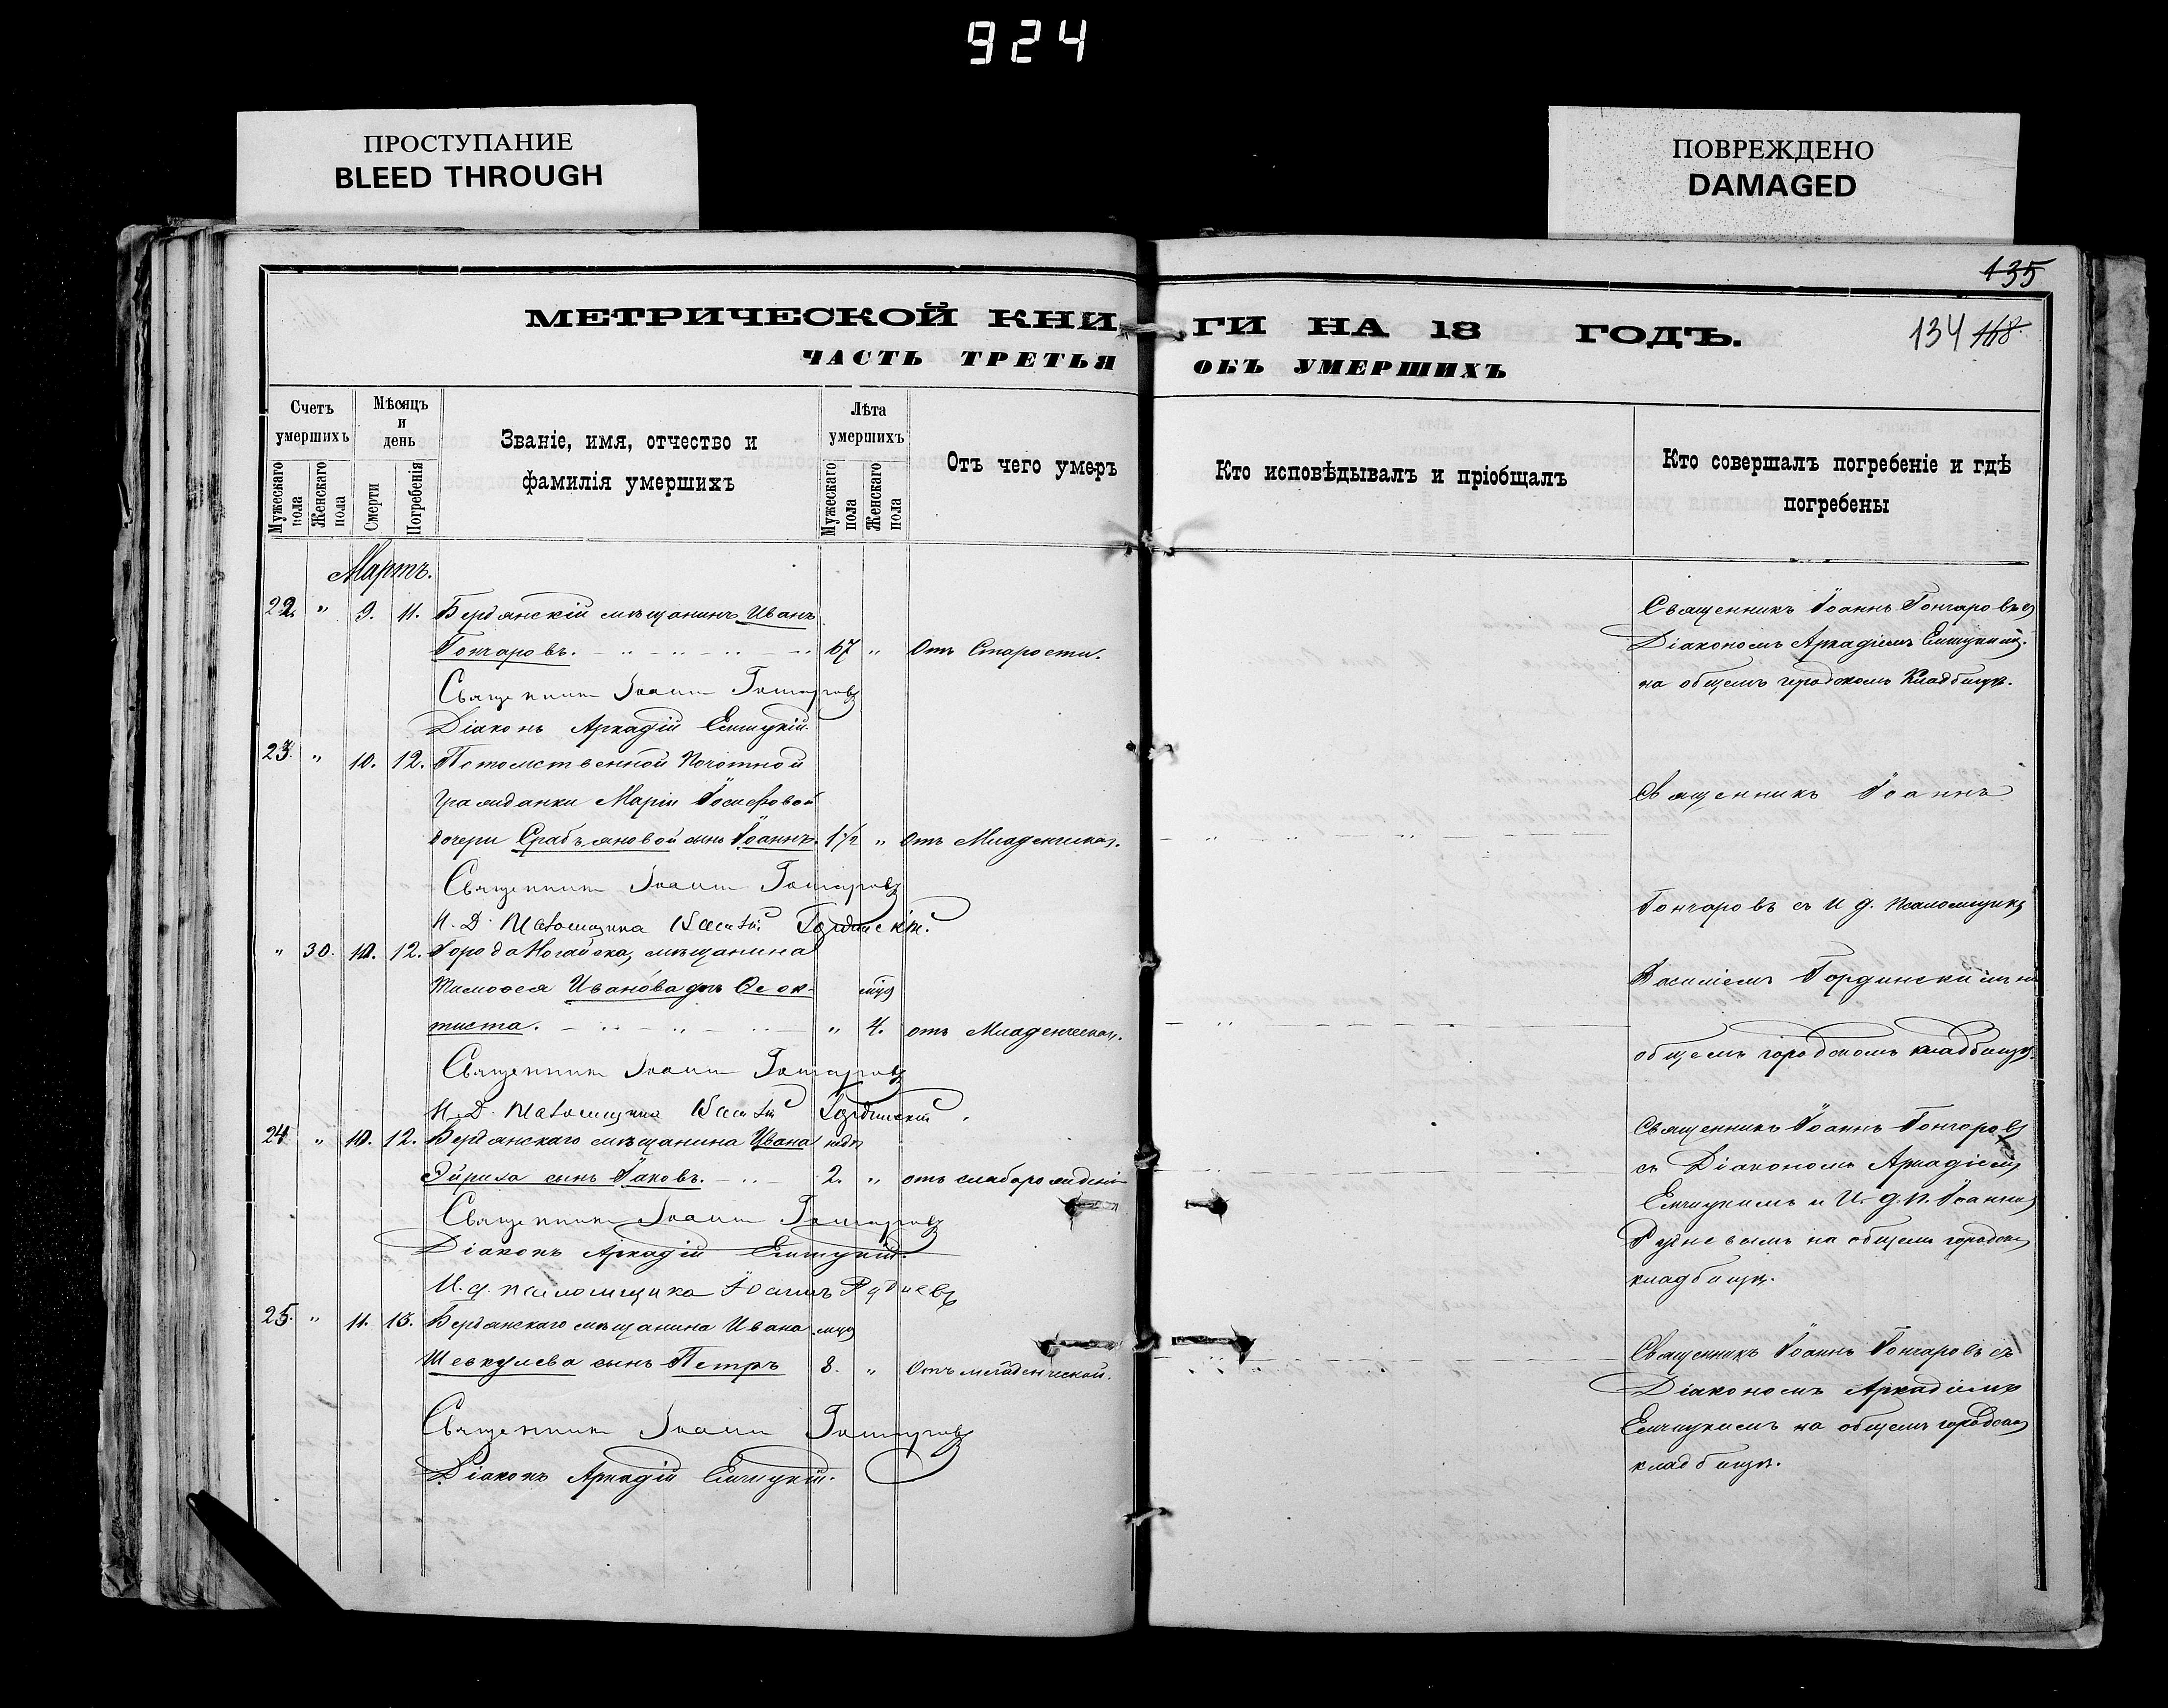 924
ПРОСТУПАНИЕ
BLEED THROUGH
ПОВРЕЖДЕНО
DAMAGED
135
134 168
МЕТРИЧЕСКОЙ КНИ
ГИ НА 18 ГОДЪ.
ЧАСТЬ ТРЕТЬЯ
ОБЪ УМЕРШИХЪ
Счетъ умершихъ
Мужескаго пола
Женскаго пола
Мѣсяцъ и день
Смерти
Погребенія
Званіе, имя, отчество и
фамилія умершихъ
Лѣта умершихъ
Мужескаго пола
Женскаго пола
Отъ чего умеръ
Кто исповѣдывалъ и пріобщалъ
Кто совершалъ погребеніе и гдѣ
погребены
Мартъ.
22. " 9. 11. Бердянскій мѣщанинъ Иванъ
Гончаровъ. 67 " Отъ Старости.
Священникъ Іоаннъ Гончаровъ
Діаконъ Аркадій Емчицкій.
Священникъ Іоаннъ Гончаровъ с
Діакономъ Аркадіемъ Емчицкимъ.
на общемъ городскомъ кладбищѣ.
23. " 10. 12. Потомственной Почотной
Гражданки Маріи Іосифовой
дочери сынъ Іоаннъ. 1 1/2 " Отъ Младенческой.
Священникъ Іоаннъ Гончаровъ
И. Д. Псаломщика Василій Гординскій.
Священникъ Іоаннъ
Гончаровъ съ И д. Псаломщика
Василіемъ Гординскимъ на
общемъ городскомъ кладбищѣ.
" 30. 10. 12. Города Ногайска, мѣщанина
Тимофея Иванова дочь Ѳеок-
тиста. " 4. отъ Младенческой.
Священникъ Іоаннъ Гончаровъ
И. Д. Псаломщика Василій Гординскій.
24 " 10. 12. Бердянскаго мѣщанина Ивана
сынъ Іаковъ. 2. " отъ слаборожденія
Священникъ Іоаннъ Гончаровъ
Діаконъ Аркадій Емчицкій.
И. д. псаломщика Іоаннъ Рудневъ
Священникъ Іоаннъ Гончаровъ
съ Діакономъ Аркадіемъ
Емчицкимъ и И. д. п. Іоанномъ
Рудневымъ на общемъ городском
кладбищѣ.
25. " 11. 13. Бердянскаго мѣщанина Ивана
сынъ Петръ 8. " Отъ младенческой.
Священникъ Іоаннъ Гончаровъ
Діаконъ Аркадій Емчицкій.
Священникъ Іоаннъ Гончаровъ съ
Діакономъ Аркадіемъ
Емчицкимъ на общемъ городском
кладбищѣ.